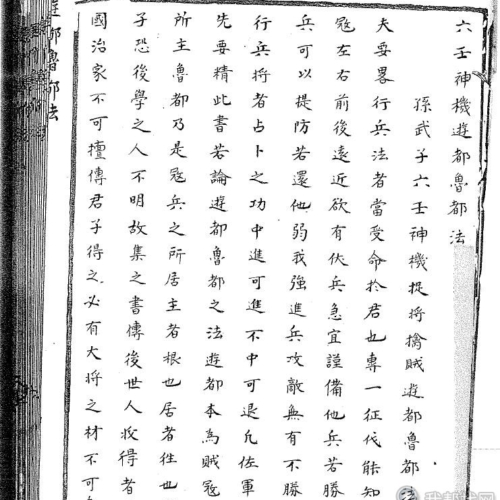 六壬神機遊都魯都法
孫武子六壬神機捉將擒賊遊都魯都
夫要畧行兵法者當受命於君也專一征伐能知
冦左右前後遠近欲有伏兵急宜謹備他兵若勝
兵可以提防若還他弱我強進兵攻敵無有不勝
行兵將者占卜之功中進可進不中可退凢佐軍
先要精此書若論遊都魯都之法遊都本為賊冦
所主魯都乃是冦兵之所居主者根也居者徃也
子恐後學之人不明故集之書傳後世人收得者
國治家不可擅傳君子得之必有大將之材不可
遊都魯都法